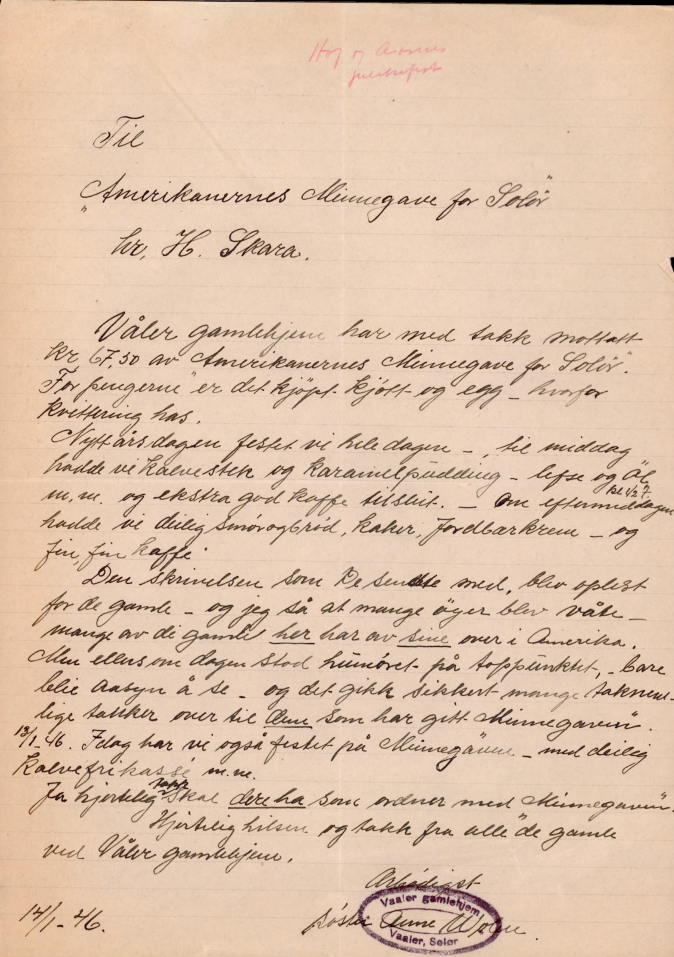 Hof og Aasnes
Til
"Amerikanernes Minnegave for Solør"
hr. H. Skara.
Våler gamlehjem har med takk mottatt
kr 67,50 av "Amerikanernes Minnegave for Solør".
For pengerne er det kjøpt kjøtt og egg – hvorfor
kvittering has.
Nyttårsdagen festet vi hele dagen –, til middag
hadde vi kalvestek og karamelpudding – lefse og Øl
m.m. og ekstra god kaffe tilslut. – om eftermiddagen kl 1/2 7.
hadde vi deilig smørogbrød, kaker, jordbærkrem – og
fin, fin kaffe.
Den skrivelsen som De sendte med, blev oplest
for de gamle – og jeg så at mange øyer blev våte –
mange av de gamle her har av sine over i Amerika.
Men ellers om dagen stod humøret på toppunktet, – bare
blie aasyn å se – og det gikk sikkert mange taknem-
lige tanker over til dem som har gitt "Minnegaven".
13/1-46. Idag har vi også festet på "Minnegaven" – med deilig
kalvefrikassé m.m.
Ja hjertelig takk skal dere ha som ordner med "Minnegaven".
Hjertelig hilsen og takk fra alle de gamle
ved Våler gamlehjem.
Ærbødigst
14/1-46. søster Anne
Vaaler gamlehjem
Vaaler, Solør